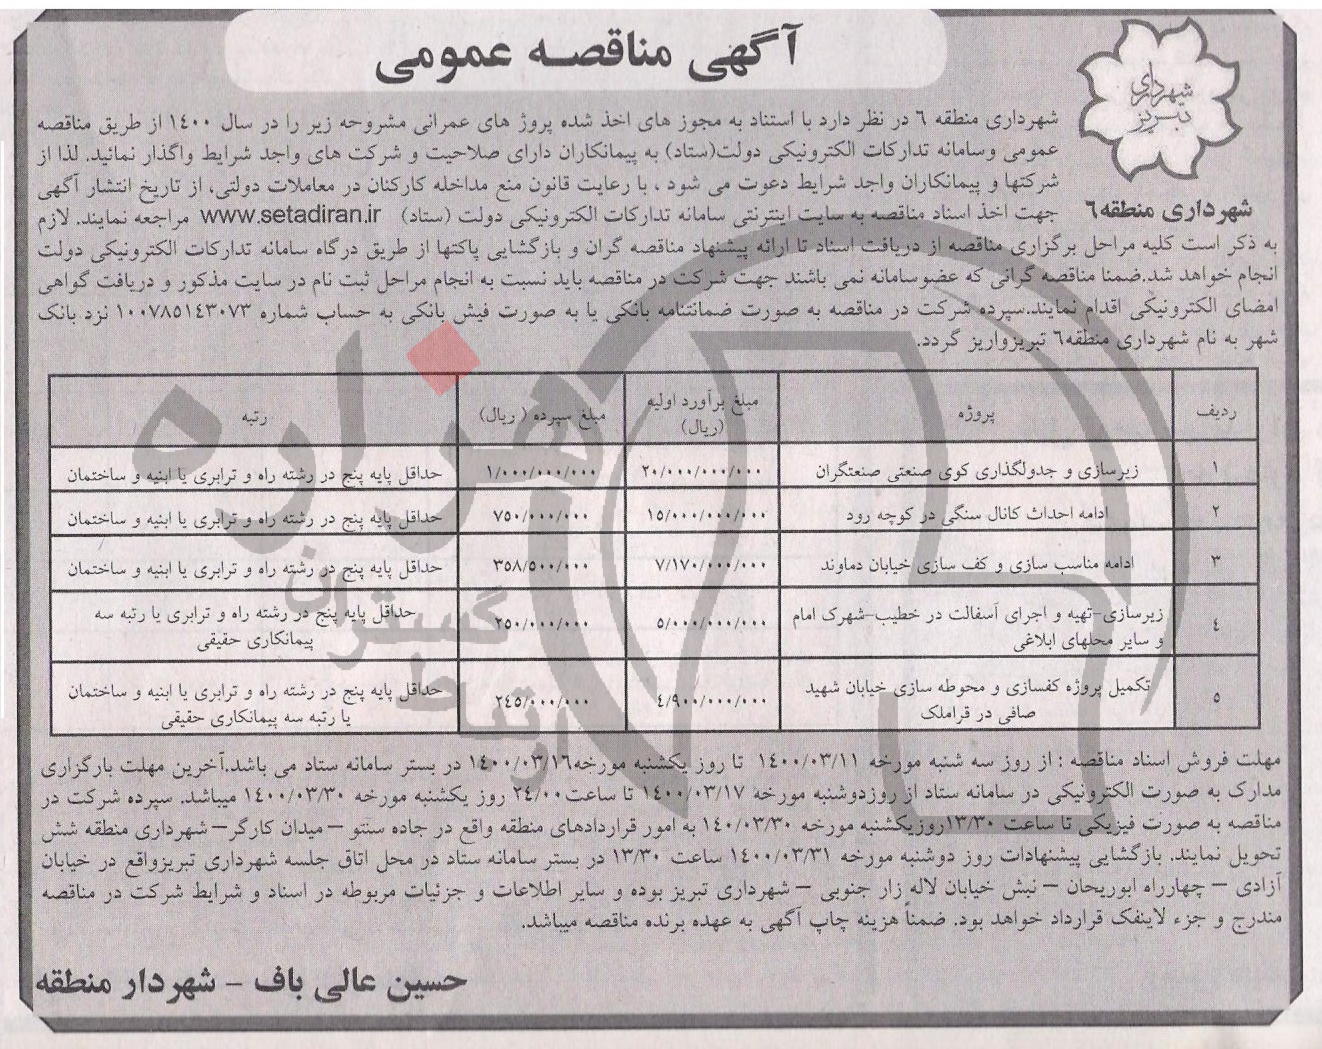 آگهی مناقصه عمومی
شهرداری تبریز
شهرداری منطقه ٦
شهرداری منطقه ٦ در نظر دارد با استناد به مجوز های اخذ شده پروژ های عمرانی مشروحه زیر را در سال ١٤٠٠ از طریق مناقصه
عمومی وسامانه تدارکات الکترونیکی دولت(ستاد) به پیمانکاران دارای صلاحیت و شرکت های واجد شرایط واگذار نمائید. لذا از
شرکتها و پیمانکاران واجد شرایط دعوت می شود ، با رعایت قانون منع مداخله کارکنان در معاملات دولتی، از تاریخ انتشار آگهی
جهت اخذ اسناد مناقصه به سایت اینترنتی سامانه تدارکات الکترونیکی دولت (ستاد) www.setadiran.ir مراجعه نمایند. لازم
به ذکر است کلیه مراحل برگزاری مناقصه از دریافت اسناد تا ارائه پیشنهاد مناقصه گران و بازگشایی پاکتها از طریق درگاه سامانه تدارکات الکترونیکی دولت
انجام خواهد شد.ضمنا مناقصه گرانی که عضوسامانه نمی باشند جهت شرکت در مناقصه باید نسبت به انجام مراحل ثبت نام در سایت مذکور و دریافت گواهی
امضای الکترونیکی اقدام نمایند.سپرده شرکت در مناقصه به صورت ضمانتنامه بانکی یا به صورت فیش بانکی به حساب شماره ١٠٠٧٨٥١٤٣٠٧٣ نزد بانک
شهر به نام شهرداری منطقه٦ تبریزواریز گردد.
ردیف | پروژه | مبلغ برآورد اولیه (ریال) | مبلغ سپرده ( ریال) | رتبه
١ | زیرسازی و جدولگذاری کوی صنعتی صنعتگران | ٢٠/٠٠٠/٠٠٠/٠٠٠ | ١/٠٠٠/٠٠٠/٠٠٠ | حداقل پایه پنج در رشته راه و ترابری یا ابنیه و ساختمان
٢ | ادامه احداث کانال سنگی در کوچه رود | ١٥/٠٠٠/٠٠٠/٠٠٠ | ٧٥٠/٠٠٠/٠٠٠ | حداقل پایه پنج در رشته راه و ترابری یا ابنیه و ساختمان
٣ | ادامه مناسب سازی و کف سازی خیابان دماوند | ٧/١٧٠/٠٠٠/٠٠٠ | ٣٥٨/٥٠٠/٠٠٠ | حداقل پایه پنج در رشته راه و ترابری یا ابنیه و ساختمان
٤ | زیرسازی-تهیه و اجرای آسفالت در خطیب-شهرک امام و سایر محلهای ابلاغی | ٥/٠٠٠/٠٠٠/٠٠٠ | ٢٥٠/٠٠٠/٠٠٠ | حداقل پایه پنج در رشته راه و ترابری یا رتبه سه پیمانکاری حقیقی
٥ | تکمیل پروژه کفسازی و محوطه سازی خیابان شهید صافی در قراملک | ٤/٩٠٠/٠٠٠/٠٠٠ | ٢٤٥/٠٠٠/٠٠٠ | حداقل پایه پنج در رشته راه و ترابری یا ابنیه و ساختمان یا رتبه سه پیمانکاری حقیقی
مهلت فروش اسناد مناقصه : از روز سه شنبه مورخه ١٤٠٠/٠٣/١١ تا روز یکشنبه مورخه١٤٠٠/٠٣/١٦ در بستر سامانه ستاد می باشد.آخرین مهلت بارگزاری
مدارک به صورت الکترونیکی در سامانه ستاد از روزدوشنبه مورخه ١٤٠٠/٠٣/١٧ تا ساعت٢٤/٠٠ روز یکشنبه مورخه ١٤٠٠/٠٣/٣٠ میباشد. سپرده شرکت در
مناقصه به صورت فیزیکی تا ساعت ١٣/٣٠روزیکشنبه مورخه ١٤٠/٠٣/٣٠ به امور قراردادهای منطقه واقع در جاده سنتو – میدان کارگر– شهرداری منطقه شش
تحویل نمایند. بازگشایی پیشنهادات روز دوشنبه مورخه ١٤٠٠/٠٣/٣١ ساعت ١٣/٣٠ در بستر سامانه ستاد در محل اتاق جلسه شهرداری تبریزواقع در خیابان
آزادی – چهارراه ابوریحان – نبش خیابان لاله زار جنوبی – شهرداری تبریز بوده و سایر اطلاعات و جزئیات مربوطه در اسناد و شرایط شرکت در مناقصه
مندرج و جزء لاینفک قرارداد خواهد بود. ضمناً هزینه چاپ آگهی به عهده برنده مناقصه میباشد.
حسین عالی باف – شهردار منطقه
هزاره
گستران
ارتباط